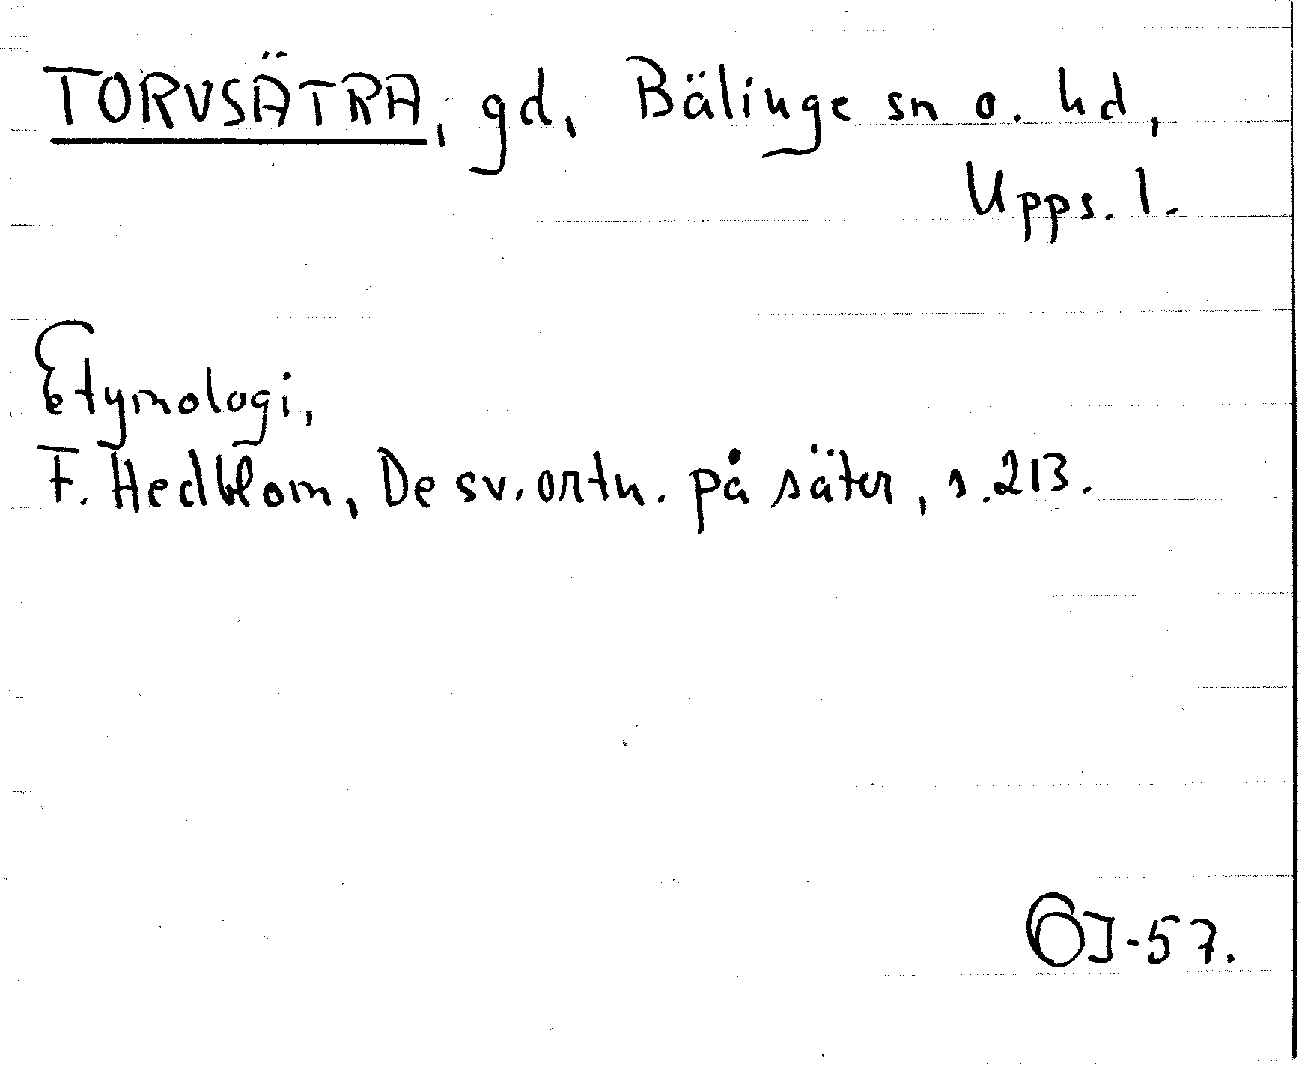 TORVSÄTRA, gd, Bälinge sn o. hd,
Upps. l.
Etymologi,
F. Hedblom, De sv. ortn. på säter, s. 213.
ÖJ-57.